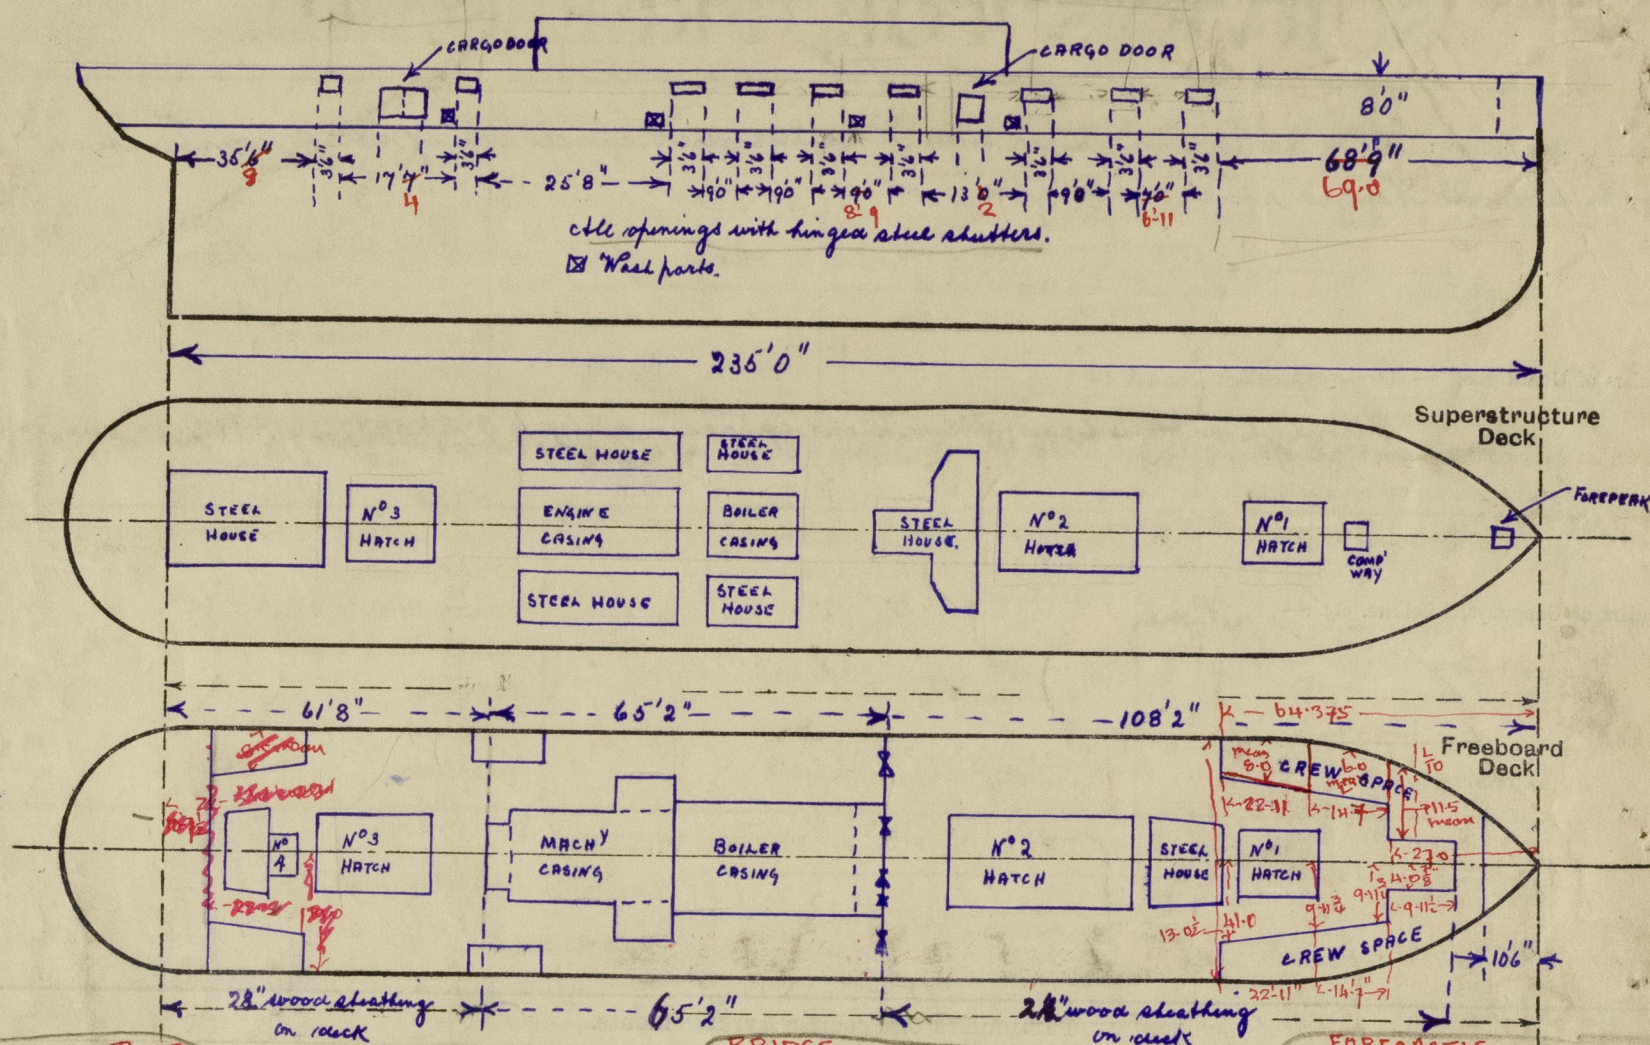 CARGO DOOR
CARGO DOOR
8'0"
35'6"
8
3'6"
17'7"
4
3'6"
25'8"
3'6"
9'0"
3'6"
9'0"
3'6"
9'0"
8'9
3'6"
13'0"
2
3'6"
9'0"
3'6"
7'0"
6-11
3'6"
68'9"
69.0
All openings with hinged steel shutters.
Wash ports.
235'0"
Superstructure
Deck
FOREPEAK
STEEL
HOUSE
No 3
HATCH
STEEL HOUSE
STEEL
HOUSE
ENGINE
CASING
BOILER
CASING
STEEL HOUSE
STEEL
HOUSE
STEEL
HOUSE.
No 2
No 1
HATCH
COMP'
WAY
61'8"
65'2"
108'2"
64.375
Freeboard
Deck
No 4
No 3
HATCH
MACHY
CASING
BOILER
CASING
No 2
HATCH
STEEL
HOUSE
No 1
HATCH
CREW SPACE
mean
8.0
6.0
mean
L
10
22-11
14-7
11.5
mean
27.0
4.0⅜
9-11¾
9-11¼
9-11½
13-0½
41.0
CREW SPACE
22'-11"
14'-7"
10'6"
2½" wood sheathing
on deck
65'2"
2½" wood sheathing
on deck
BRIDGE
FORECASTLE